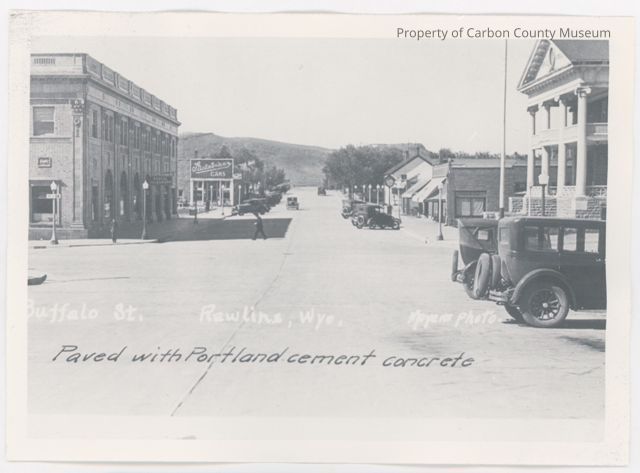 Property of Carbon County Museum
Studebaker
CARS
Buffalo St. Rawlins, Wyo. Meyers photo.
Paved with Portland cement concrete